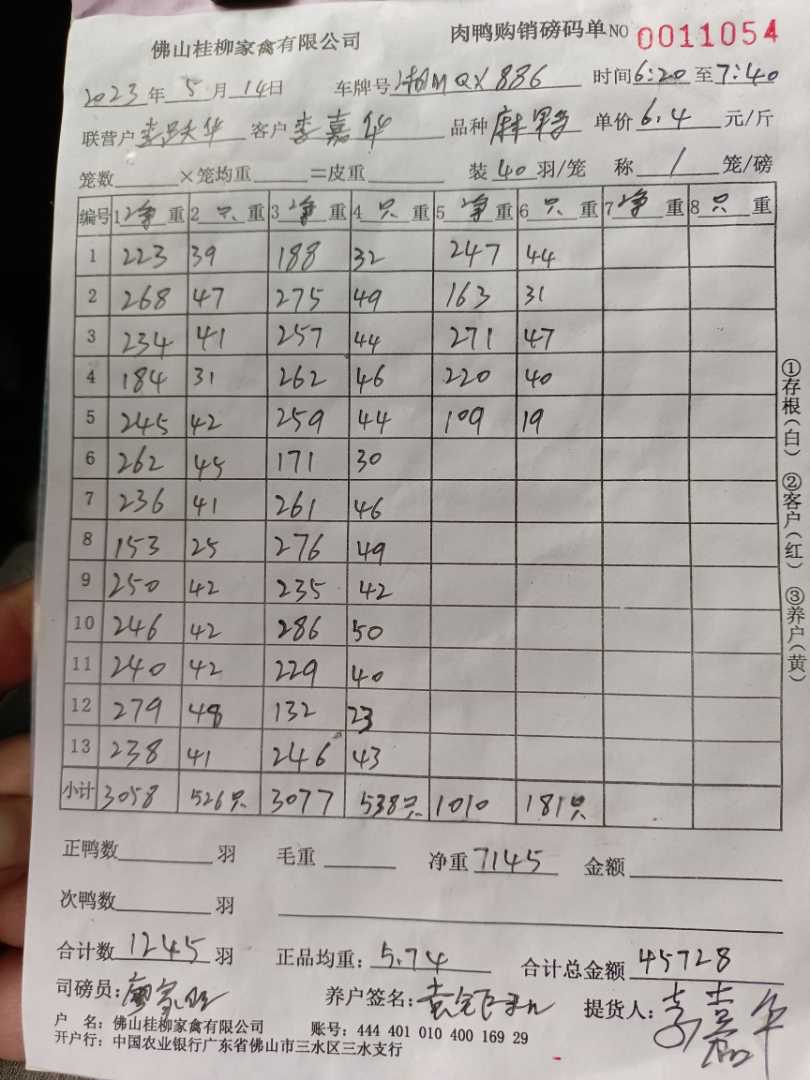 佛山桂柳家禽有限公司 肉鸭购销磅码单NO 0011054
2023年 5月 14日 车牌号 MQX886 时间6:20至7:40
联营户 客户 李嘉华 品种 麻 单价6.4元/斤
笼数 ×笼均重 =皮重 装40羽/笼 称 1 笼/磅
编号 1净重 2只重 3净重 4只重 5净重 6只重 7净重 8只重
1 223 39 188 32 247 44
2 268 47 275 49 163 31
3 234 41 257 44 271 47
4 184 31 262 46 220 40
5 245 42 259 44 109 19
6 262 45 171 30
7 236 41 261 46
8 153 25 276 49
9 250 42 235 42
10 246 42 286 50
11 240 42 229 40
12 279 48 132 23
13 238 41 246 43
小计 3058 526只 3077 538只 1010 181只
正鸭数 羽 毛重 净重7145 金额
次鸭数 羽
合计数 1245 羽 正品均重:5.74 合计总金额 45728
司磅员: 养户签名: 提货人:李嘉华
户 名:佛山桂柳家禽有限公司 账号:444 401 010 400 169 29
开户行:中国农业银行广东省佛山市三水区三水支行
①存根(白) ②客户(红) ③养户(黄)